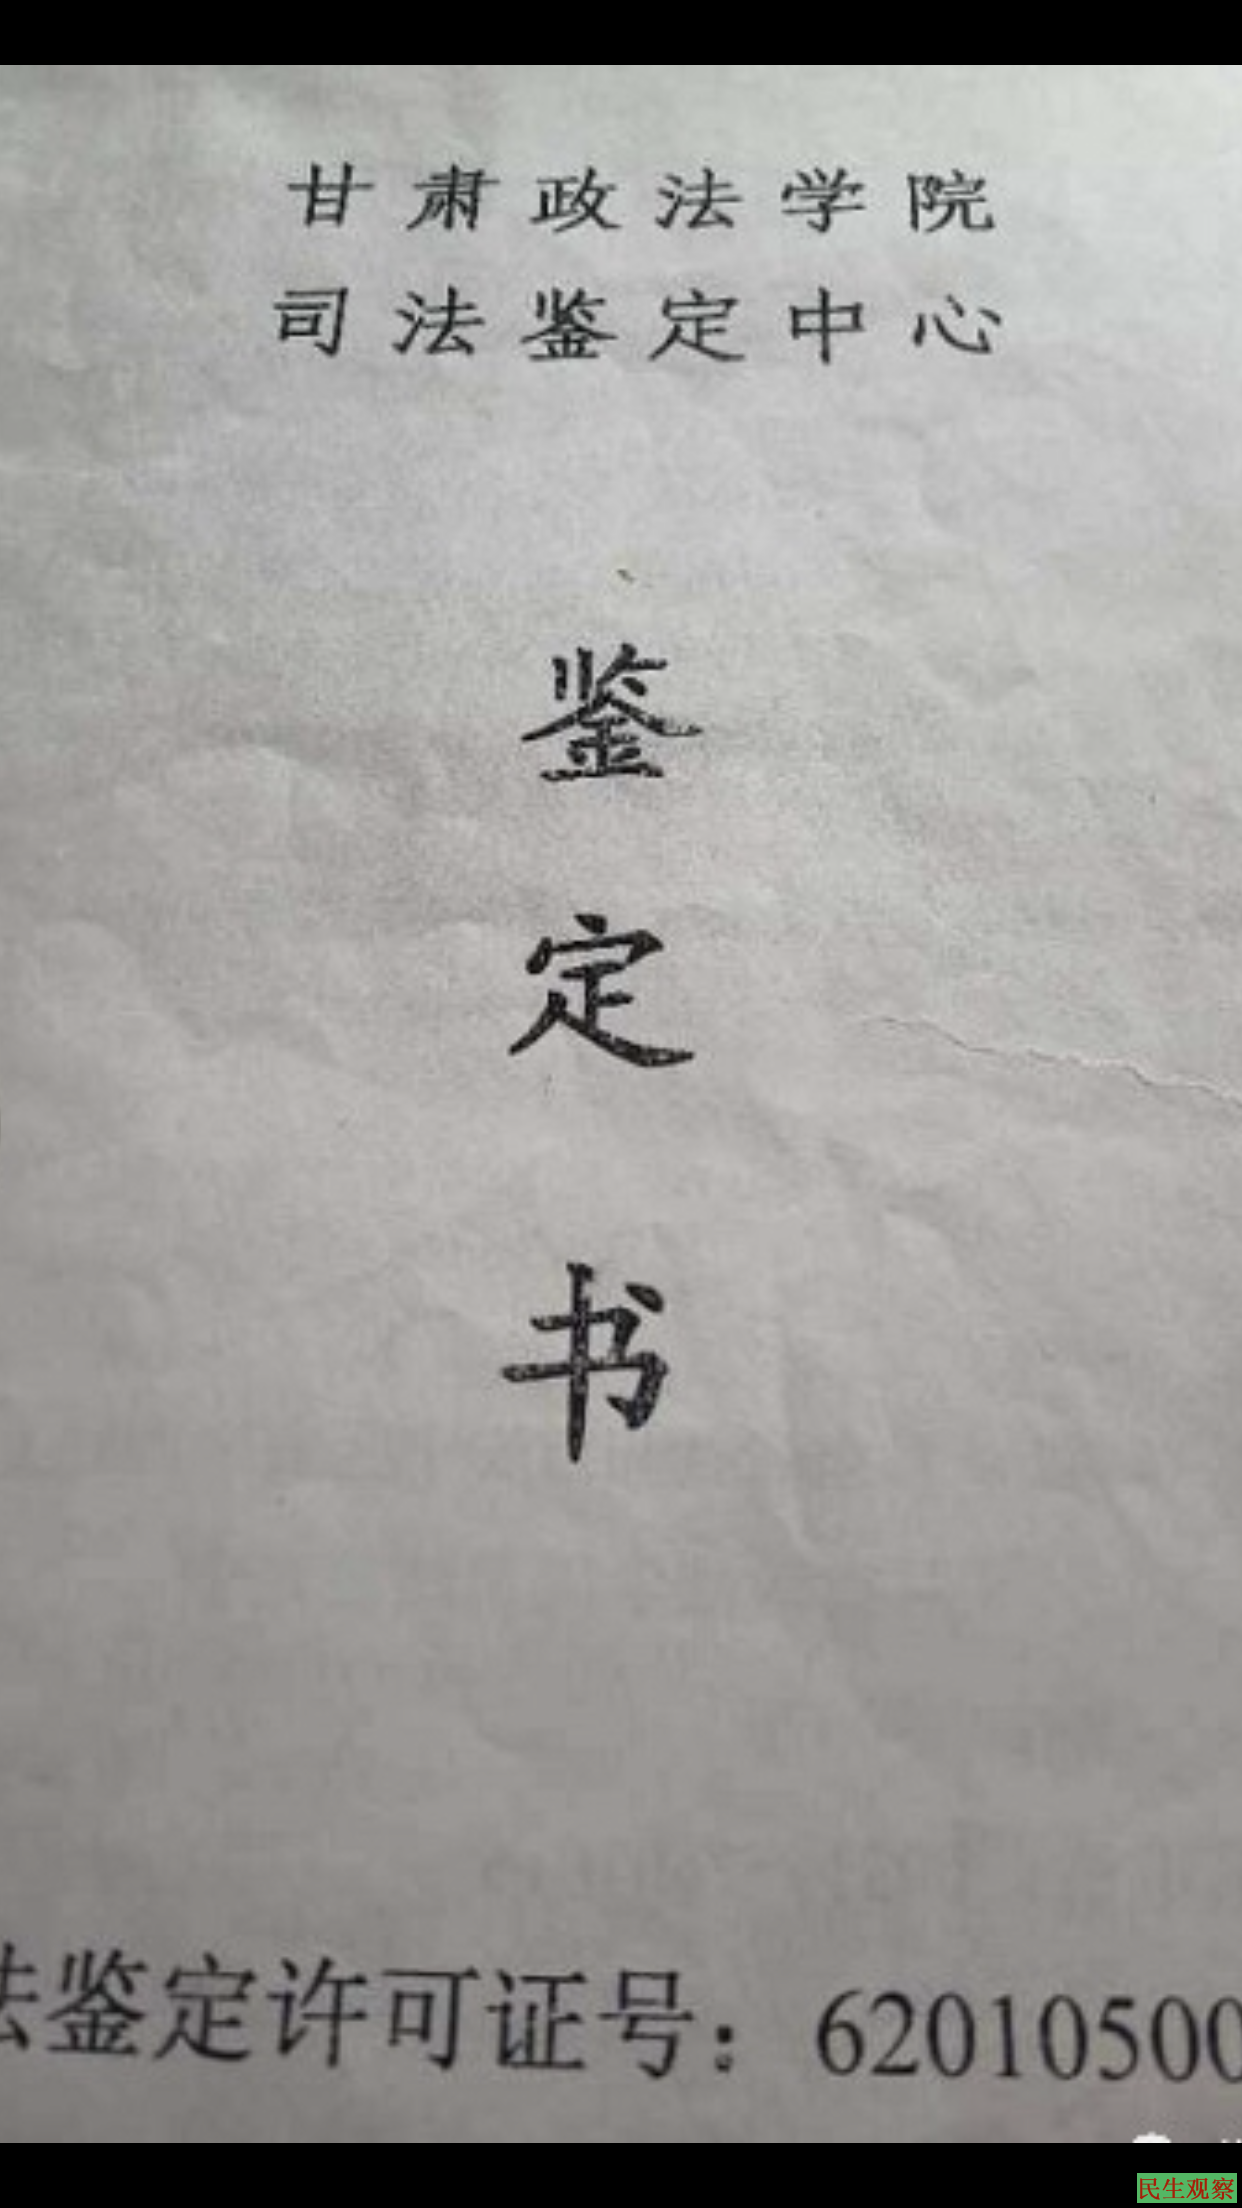 甘肃政法学院
司法鉴定中心
鉴
定
书
法鉴定许可证号：62010500
民生观察